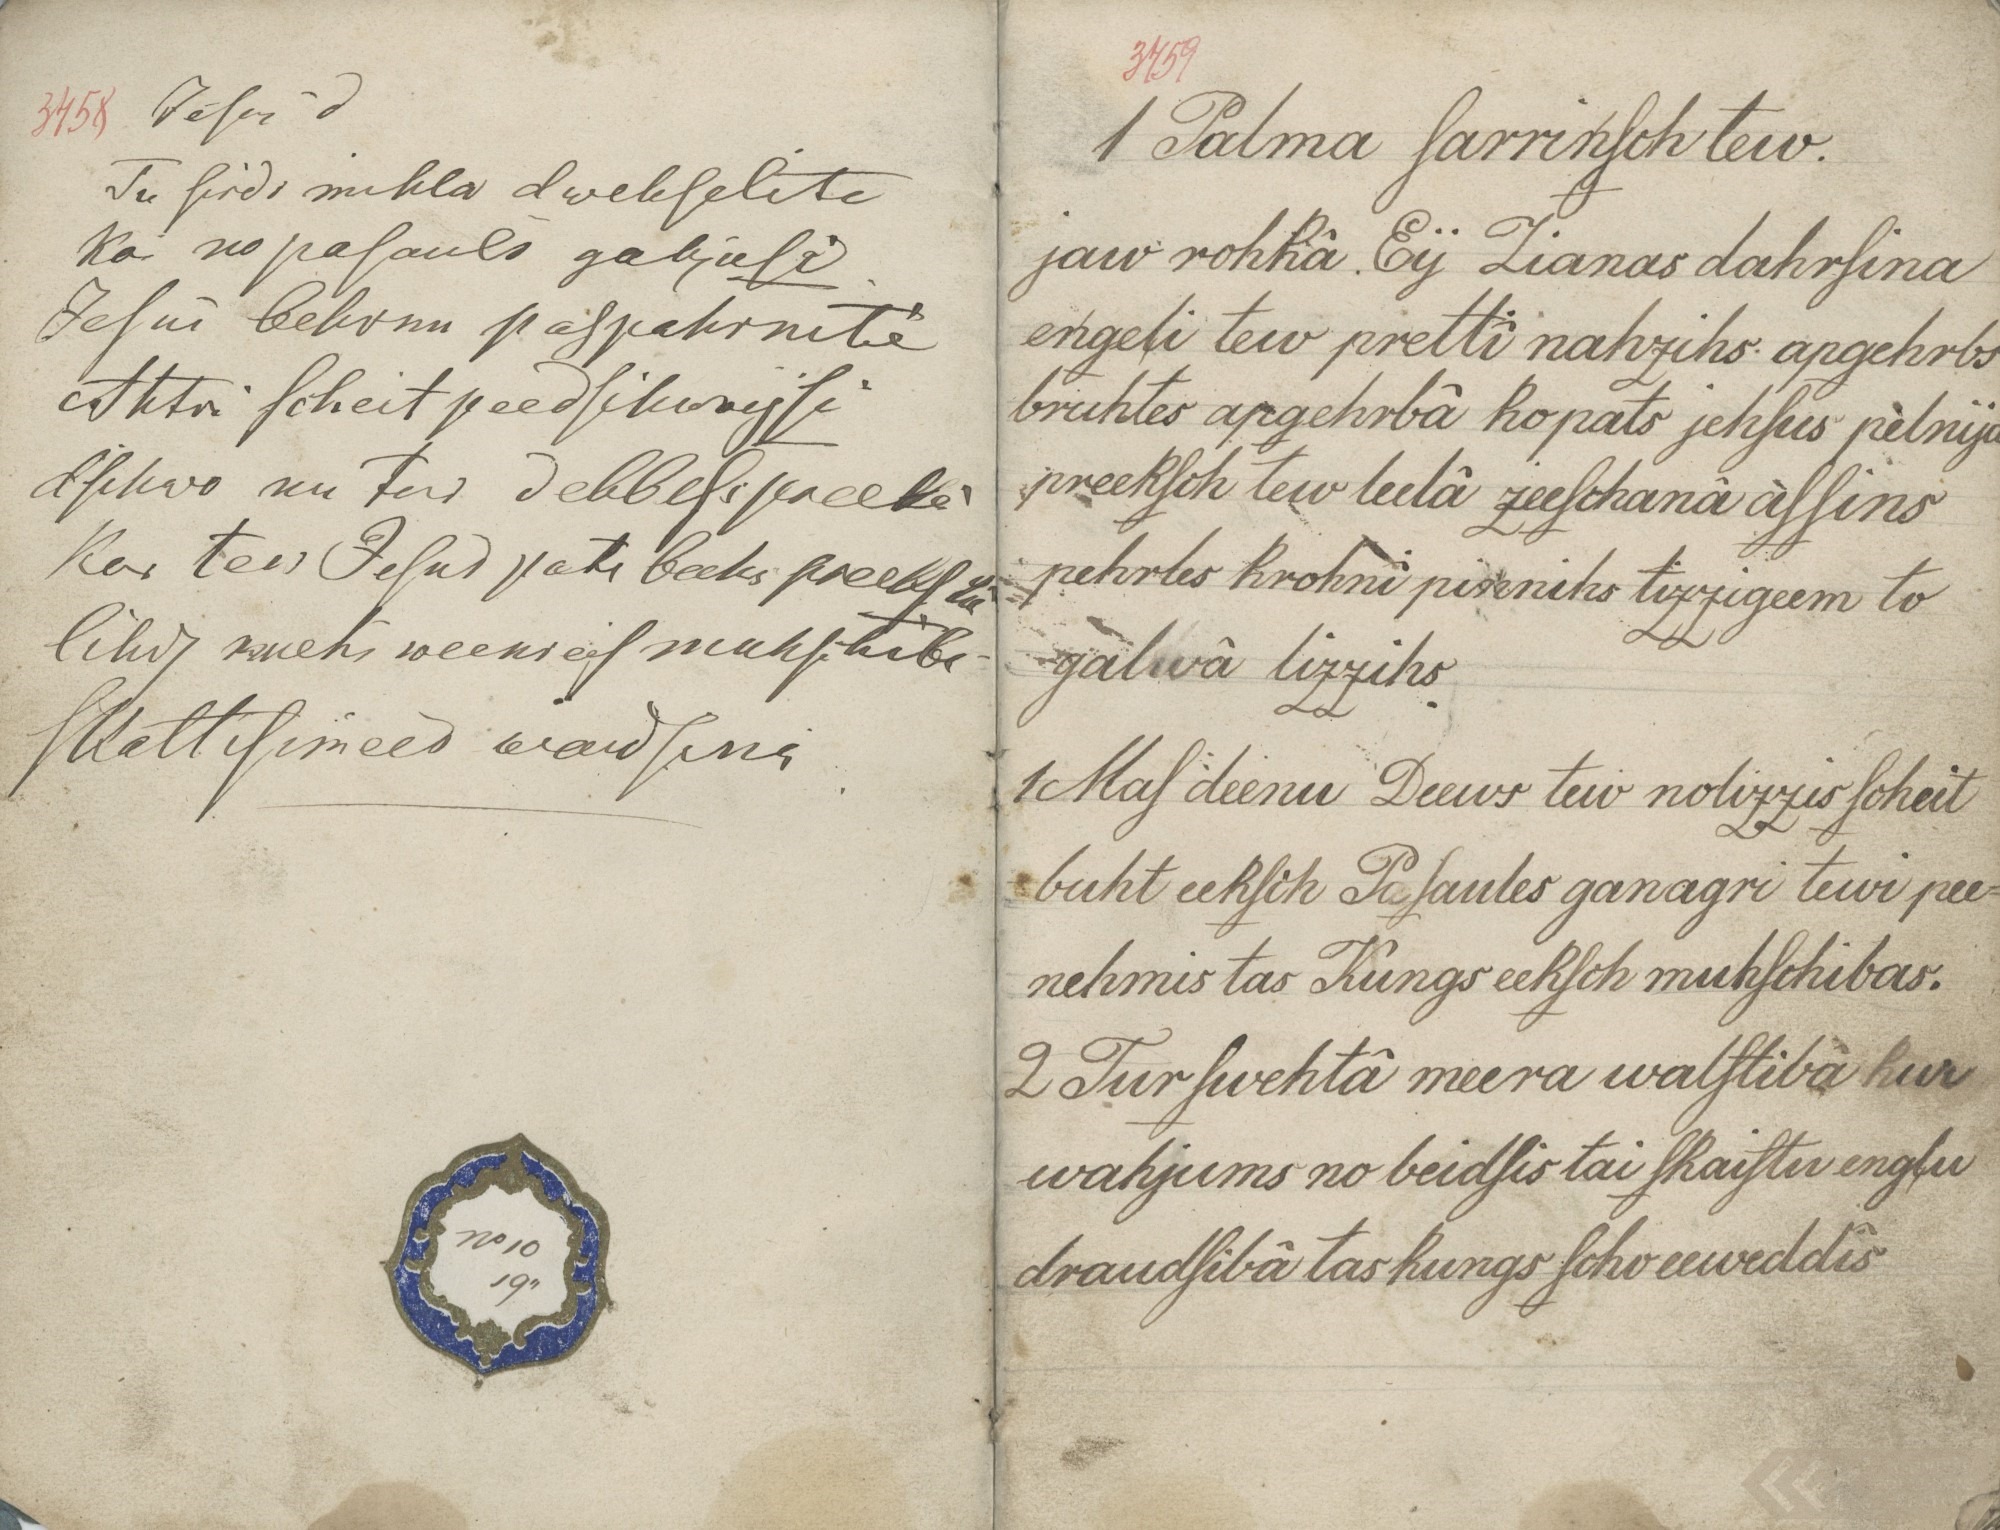 3458 Jesu d
Tu sirds mihla dwehselite
Kas no pasaules gahjusi
Jesus behrnu paspahrnite
Ahtri scheit peedsihwojsi
dsihwo nu tur debbess preeka
Kas tew Jesus pats beeks preeksch
lihds mehs weenreis muhschibe
skattisimees waidsina
no 10
19"
3459
1 Palma sarrinsch tew.
jaw rohkâ. Eij Zianas dahrsina
engeli tew prettî nahzihs. apgehrbs
bruhtes apgehrbâ ko pats jehsus pelnija
preeksch tew leelâ zeeschanâ assins
pehrles krohni pinnihs tizzigeem to
galwâ lizzihs.
1 Mas deenu Deews tew nolizzis scheit
buht eeksch Pasaules ganagri tewi pee=
nehmis tas Kûngs eeksch muhschibas.
2 Tur swehtâ meera walstibâ kur
wahjums no beidsis tai skaistu englu
draudsibâ tas kungs scho eeweddîs